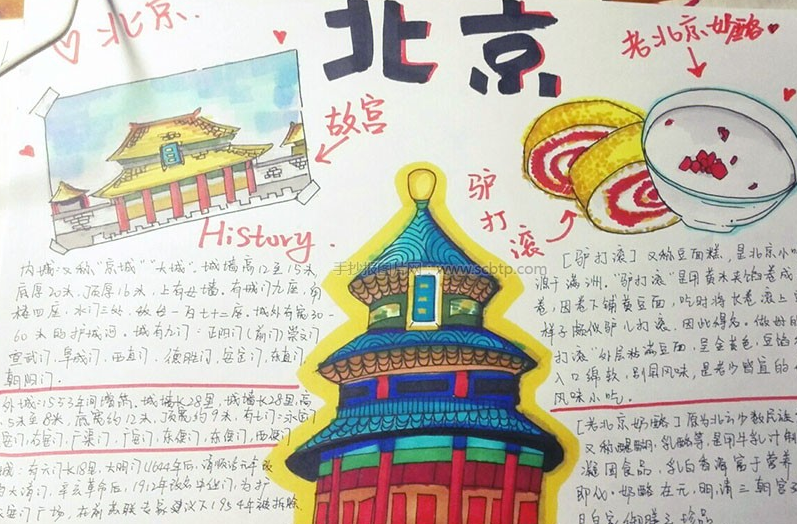 北京
北京.
老北京奶酪
故宫
驴
打
滚
History.
手抄报图片网 www.scbtp.com
内城:又称"京城""大城".城墙高12至15米
底厚20米,顶厚16米,上有女墙.有城门九座,角
楼四座,水门三处,敌台一百七十二座.城外有宽30-
60米的护城河.城有九门:正阳门(前门)崇文门
宣武门,阜成门,西直门,德胜门,安定门,东直门,
朝阳门.
外城:1553年间增筑.城墙长28里,城墙长28里,高
5米至8米,底宽约12米,顶宽约9米,有七门:永定门
安门,右安门,广渠门,广安门,东便门,西便门
城:有六门长18里.大明门(1644年后,清顺治元年改
大清门,辛亥革命后,1912年改名中华门,为扩
安门广场,在前苏联专家建议下1954年被拆除.
[驴打滚]又称豆面糕,是北京小吃
源于满洲."驴打滚"是用黄米夹馅卷成
卷,因卷下铺黄豆面,吃时将长卷滚上
样子颇似驴儿打滚,因此得名.做好的
打滚"外层粘满豆面,呈金黄色,豆馅
入口绵软,别具风味,是老少皆宜的
风味小吃.
[老北京奶酪]原为北方少数民族
又称醍醐,乳酪等,是用牛乳汁制
凝固食品,乳白香滑富于营养
即化.奶酪在元,明,清三朝宫